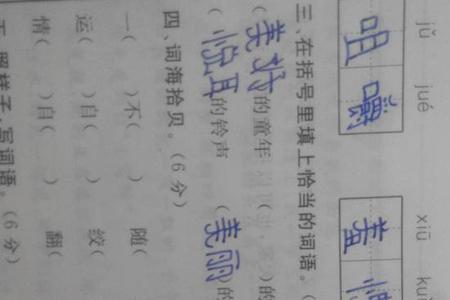 jǔ jué xiū ku
咀嚼 羞
三、在括号里填上恰当的词语。(
(美好)的童年 ( )的
(悦耳)的铃声 (美丽)的
四、词海拾贝。(6分)
一( )不( ) 随
运( )自( ) 绞
情( )自( ) 翻
照样子,写词语。(6分)